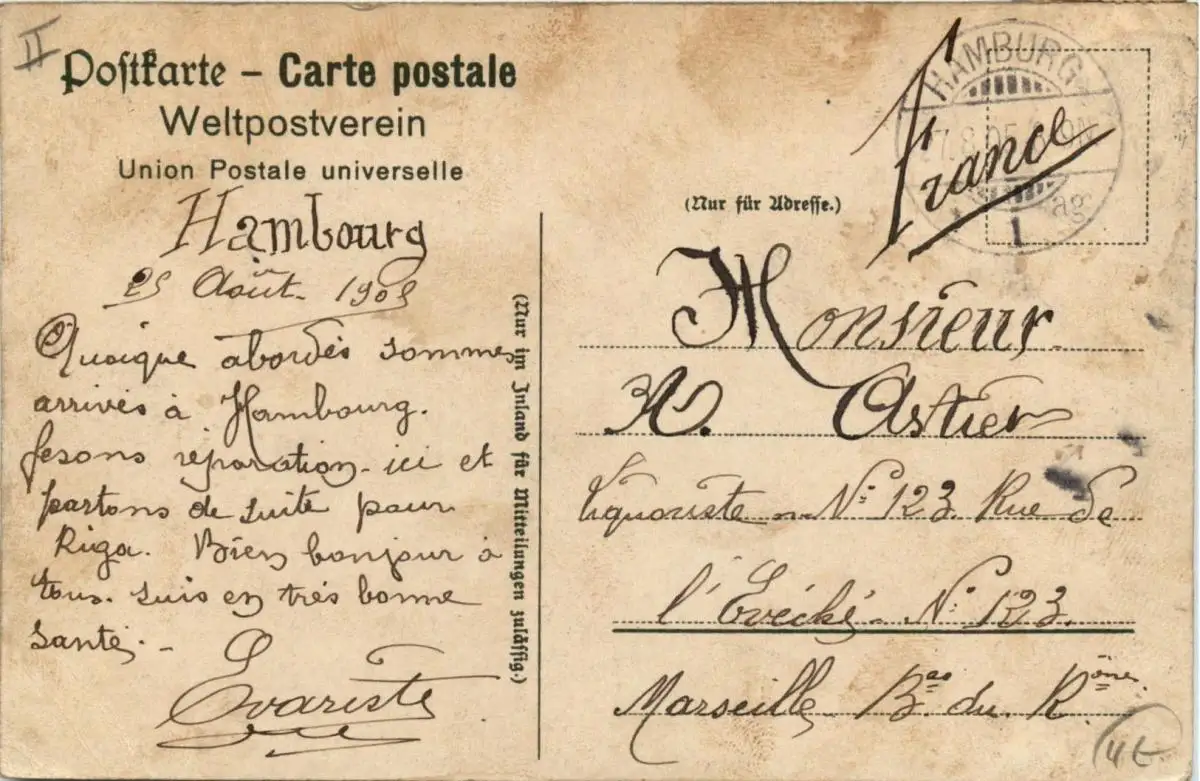 II
Postkarte – Carte postale
Weltpostverein
Union Postale universelle
Hambourg
25 Août. 1905
Quoique abordés sommes
arrivés à Hambourg.
fesons réparation ici et
partons de suite pour
Riga. Bien bonjour à
tous. suis en très bonne
santé.
Evariste
(Nur im Inland für Mitteilungen zulässig.)
HAMBURG
1
France
(Nur für Adresse.)
Monsieur
Astier
Liquoriste N° 123 Rue de
l'Evêché. N° 123.
Marseille B.es du. Rône.